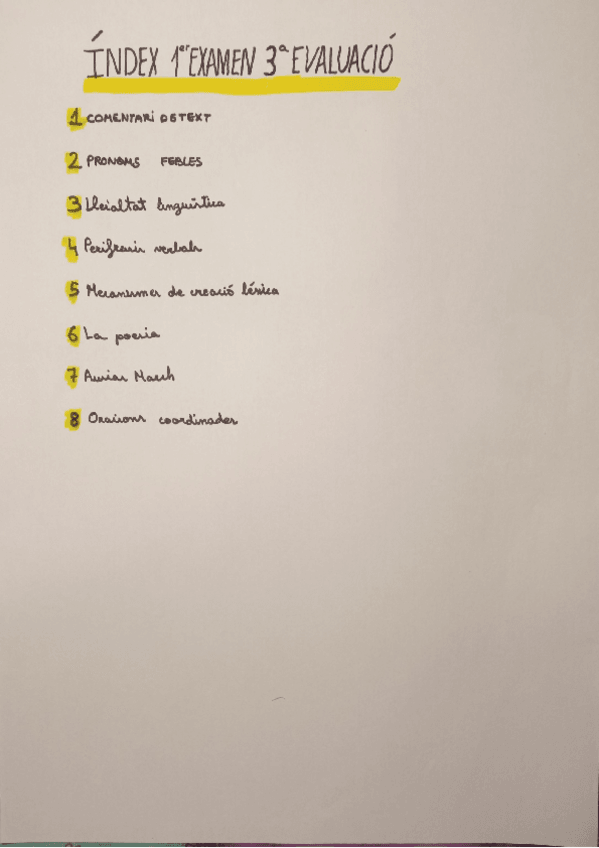 ÍNDEX 1er EXAMEN 3ª EVALUACIÓ
1 COMENTARI DE TEXT
2 PRONOMS FEBLES
3 Lleialtat lingüística
4 Perífrasis verbals
5 Mecanismes de creació lèxica
6 La poesia
7 Ausias March
8 Oracions coordinades